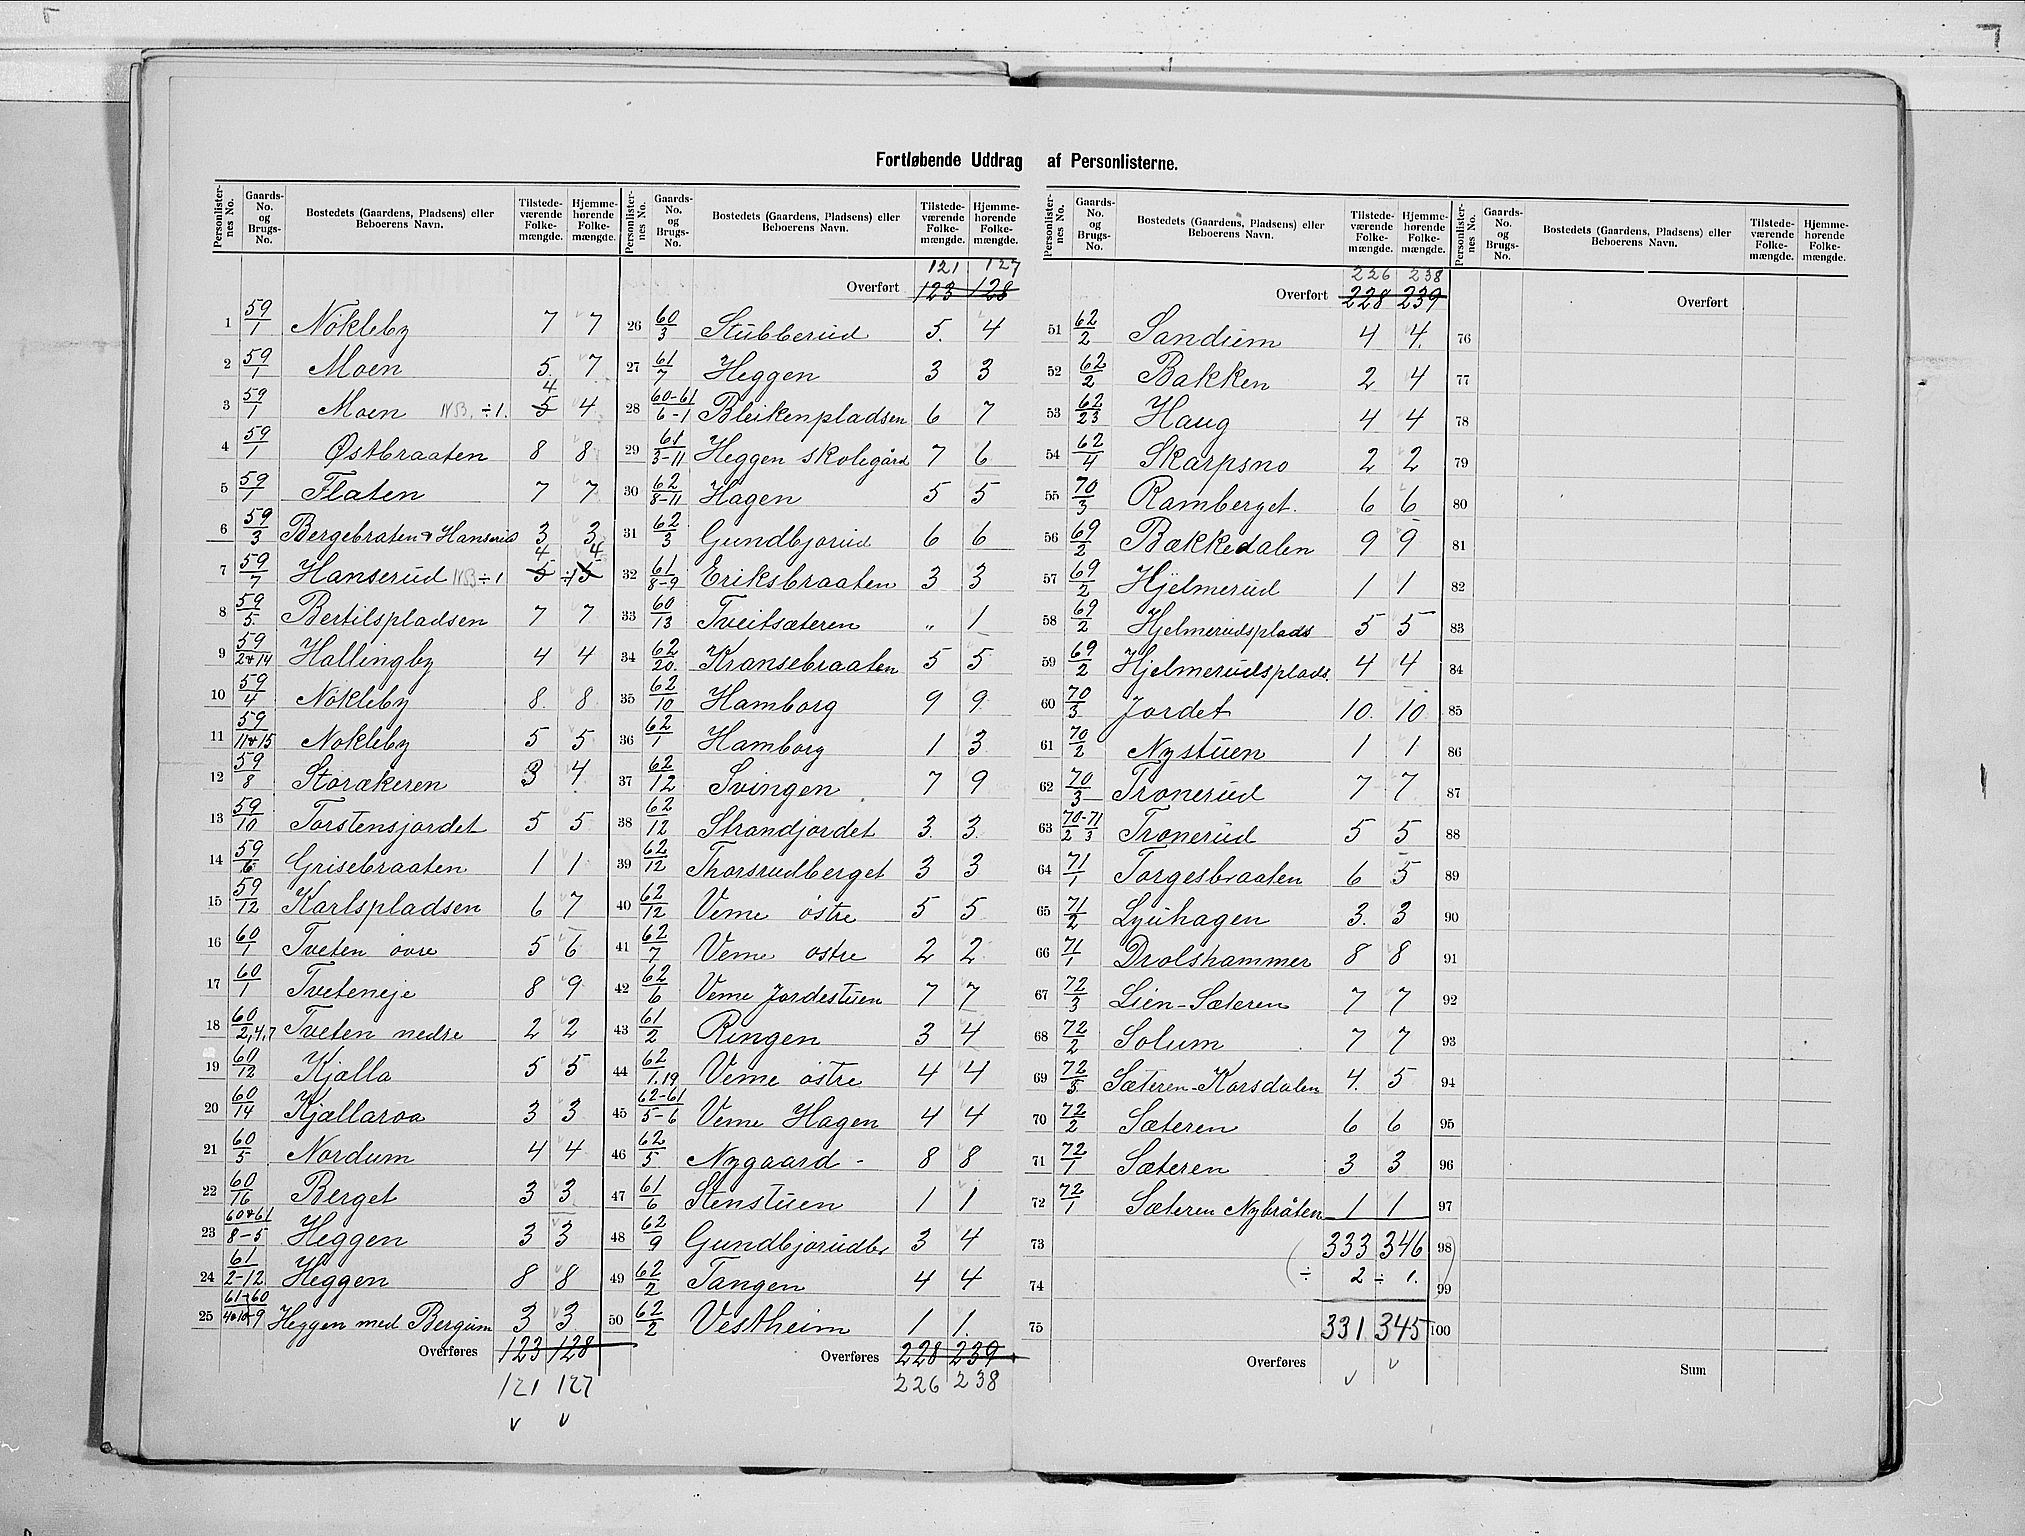 Fortløbende Uddrag af Personlisterne.
Personlisternes No. Gaards-No. og Brugs-No. Bostedets (Gaardens, Pladsens) eller Beboerens Navn. Tilstedeværende Folkemængde. Hjemmehørende Folkemængde.
1 59/1 Nökleby 7 7
2 59/1 Moen 5 7
3 59/1 Moen NB. ÷1. 5 4 4
4 59/1 Østbraaten 8 8
5 59/1 Flaten 7 7
6 59/3 Bergebraten & Hanserud 3 3
7 59/7 Hanserud NB ÷1 5 4 ÷1 5 4
8 59/5 Bertilspladsen 7 7
9 59/2&14 Hallingby 4 4
10 59/4 Nökleby 8 8
11 59/11&15 Nökleby 5 5
12 59/8 Storækeren 3 4
13 59/10 Torstensjordet 5 5
14 59/6 Grisebraaten 1 1
15 59/12 Karlspladsen 6 7
16 60/1 Tveten övre 5 6
17 60/1 Tveteneje 8 9
18 60/2,4,7 Tveten nedre 2 2
19 60/12 Kjælla 5 5
20 60/14 Kjællaroa 3 3
21 60/5 Nordum 4 4
22 60/16 Berget 3 3
23 60&61/8-5 Heggen 3 3
24 61/2-12 Heggen 8 8
25 61+60 Heggen med Bergum 3 3
Overføres 123 128
121 127
v v
Personlisternes No. Gaards-No. og Brugs-No. Bostedets (Gaardens, Pladsens) eller Beboerens Navn. Tilstedeværende Folkemængde. Hjemmehørende Folkemængde.
121 127
Overført 123 128
26 60/3 Stubberud 5. 4
27 61/7 Heggen 3 3
28 60-61/6-1 Bleikenpladsen 6 7
29 61/3-11 Heggen skolegård 7 6
30 62/8-11 Hagen 5 5
31 62/3 Gundbjørud 6 6
32 61/8-9 Eriksbraaten 3 3
33 60/13 Tveitsæteren " 1
34 62/20. Kransebraaten 5 5
35 62/10 Hamborg 9 9
36 62/1 Hamborg 1 3
37 62/12 Svingen 7 9
38 62/12 Strandjordet 3 3
39 62/12 Thorsrudberget 3 3
40 62/12 Veme östre 5 5
41 62/7 Veme östre 2 2
42 62/6 Veme Jordestuen 7 7
43 61/2 Ringen 3 4
44 62/1.19 Veme östre 4 4
45 62-61/5-6 Veme Hagen 4 4
46 62/5 Nygaard - 8 8
47 61/6 Stenstuen 1 1
48 62/9 Gundbjørudbr 3 4
49 62/2 Tangen 4 4
50 62/2 Vestheim 1 1.
Overføres 228 239
226 238
Personlisternes No. Gaards-No. og Brugs-No. Bostedets (Gaardens, Pladsens) eller Beboerens Navn. Tilstedeværende Folkemængde. Hjemmehørende Folkemængde.
226 238
Overført 228 239
51 62/2 Sandum 4 4.
52 62/2 Bakken 2 4
53 62/23 Haug 4 4
54 62/4 Skarpsno 2 2
55 70/3 Ramberget. 6 6
56 69/2 Bækkedalen 9 9
57 69/2 Hjelmerud 1 1
58 69/2 Hjelmerudsplads 5 5
59 69/2 Hjelmerudsplads. 4 4
60 70/3 Jordet 10. 10
61 70/2 Nystuen 1 1
62 70/3 Tronerud 7 7
63 70-71/2 3 Tronerud 5 5
64 71/1 Torgesbraaten 6 5
65 71/2 Lyuhagen 3. 3
66 71/1 Drolshammer 8 8
67 72/3 Lien-Sæteren 7 7
68 72/2 Solum 7 7
69 72/5 Sæteren-Korsdalen 4. 5
70 72/2 Sæteren 6 6
71 72/1 Sæteren 3 3
72 72/1 Sæteren Nybråten 1 1
73 333 346
74 ÷ 2 ÷ 1.
75 331 345
Overføres
v v
Personlisternes No. Gaards-No. og Brugs-No. Bostedets (Gaardens, Pladsens) eller Beboerens Navn. Tilstedeværende Folkemængde. Hjemmehørende Folkemængde.
Overført
76
77
78
79
80
81
82
83
84
85
86
87
88
89
90
91
92
93
94
95
96
97
98
99
100
Sum